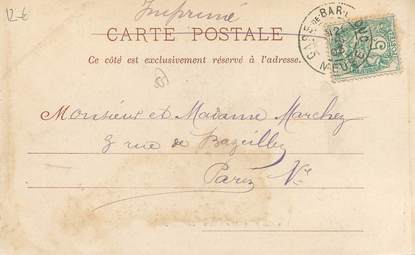 12-6
Imprimé
CARTE POSTALE
Ce côté est exclusivement réservé à l'adresse.
GARE DE BAR-LE-DUC
MEUSE
5
Monsieur et Madame Marchez
9 rue de Bazeilles
Paris Ve